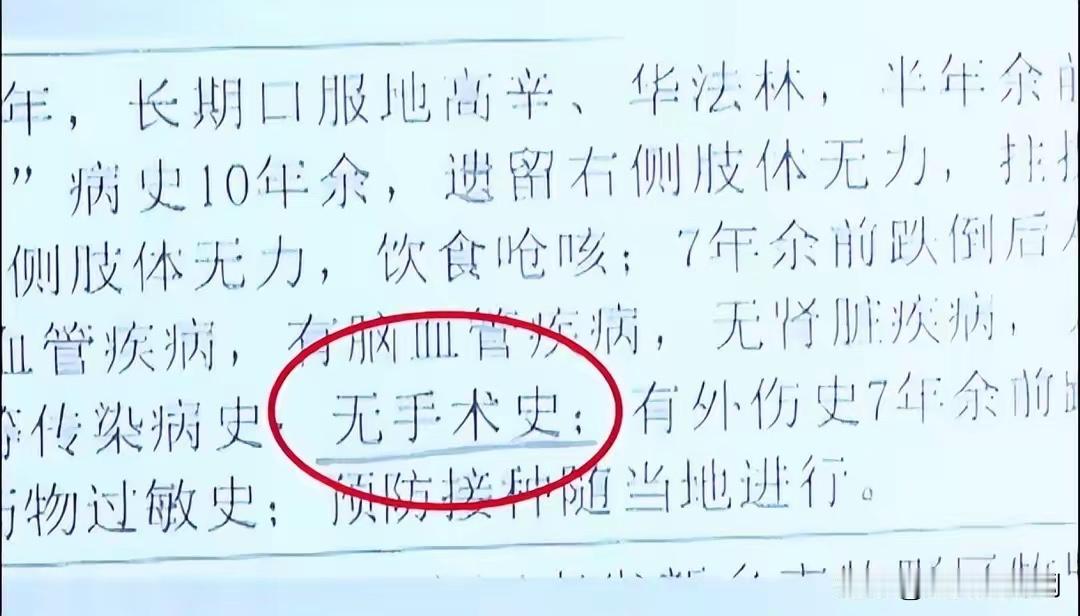 年，长期口服地高辛、华法林，半年余前
”病史10年余，遗留右侧肢体无力，
侧肢体无力，饮食呛咳；7年余前跌倒后
血管疾病，有脑血管疾病，无肾脏疾病，
等传染病史；无手术史；有外伤史7年余前
药物过敏史；预防接种随当地进行。